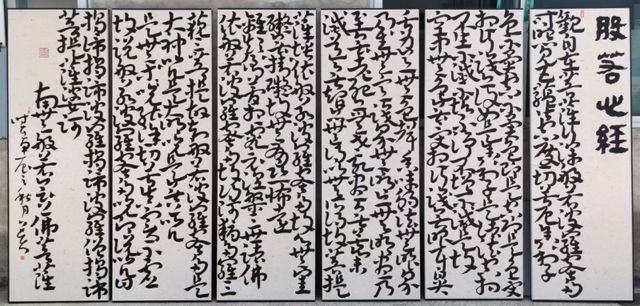 般若心經
觀自在菩薩行深般若波羅蜜多
時照見五蘊皆空度一切苦厄舍利子
色不異空空不異色色即是空空即是色受
想行識亦復如是舍利子是諸法空相不
生不滅不垢不淨不增不減是故
空中無色無受想行識無眼耳鼻
舌身意無色聲香味觸法無眼界
乃至無意識界無無明亦無無明盡乃
至無老死亦無老死盡無苦集
滅道無智亦無得以無所得故菩提
薩埵依般若波羅蜜多故心無罣
礙無罣礙故無有恐怖遠
離顛倒夢想究竟涅槃三世諸佛
依般若波羅蜜多故得阿耨多羅三
藐三菩提故知般若波羅蜜多是
大神咒是大明咒是無上咒
是無等等咒能除一切苦真實不虛
故說般若波羅蜜多咒即說咒曰
揭諦揭諦波羅揭諦波羅僧揭諦
菩提薩婆訶
南無般若會上佛菩薩